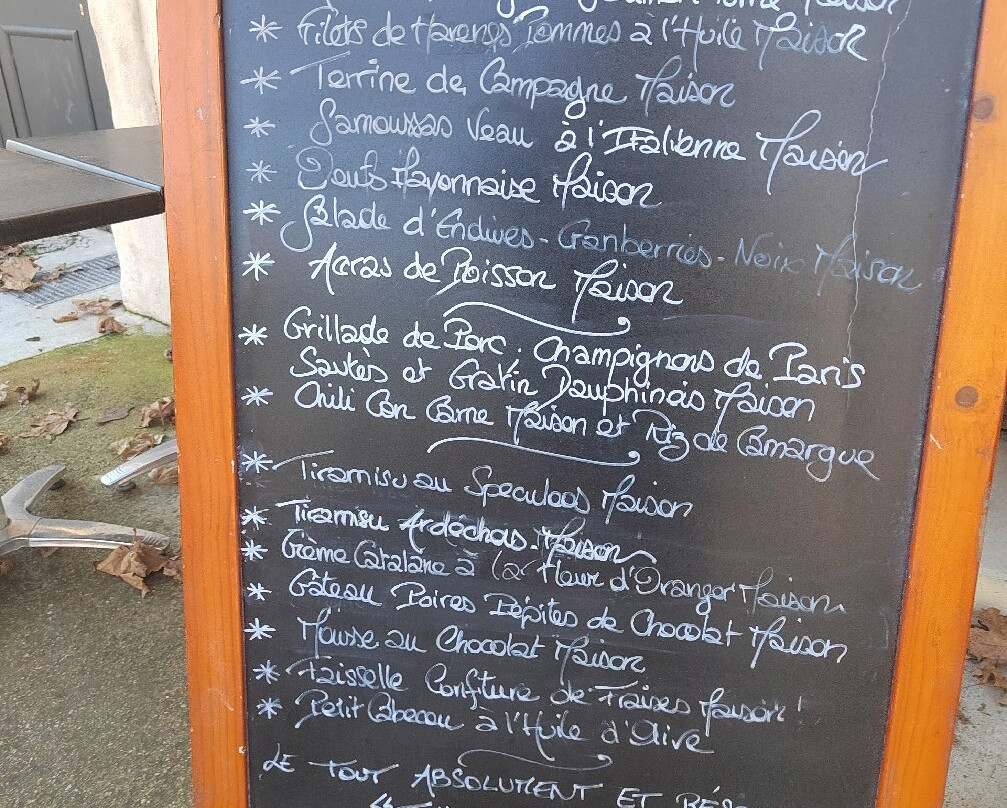 Maison
* Filets de Harengs Pommes à l'Huile Maison
* Terrine de Campagne Maison
* Samoussas Veau à l'Italienne Maison
* Oeufs Mayonnaise Maison
* Salade d'Endives - Cranberries - Noix Maison
* Accras de Poisson Maison
* Grillade de Porc, Champignons de Paris
Sautés et Gratin Dauphinois Maison
* Chili Con Carne Maison et Riz de Camargue
* Tiramisu au Speculoos Maison
* Tiramisu Ardéchois Maison
* Crème Catalane à la Fleur d'Oranger Maison
* Gâteau Poires Pépites de Chocolat Maison
* Mousse au Chocolat Maison
* Faisselle Confiture de Fraises Maison !
* Petit Cabecou à l'Huile d'Olive
LE TOUT ABSOLUMENT ET